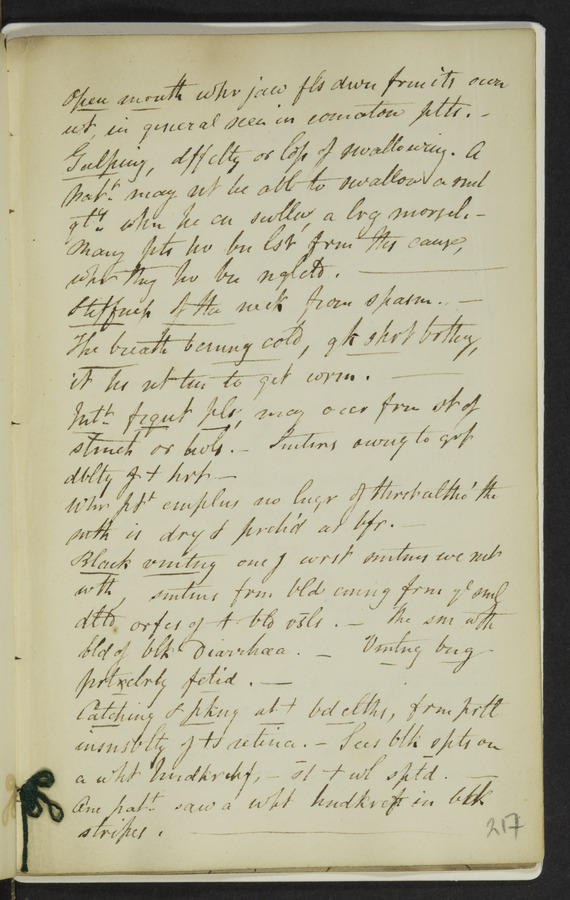 Open mouth whr jaw fls dwn frm its own
wt, in general seen in comatow ptts. -
Gulping, dffclty or loss of swallowing. A
patt. may nt be abl to swallow a sml
qty. whn he cn swllw a lrg morsel. -
Many pts hv bn lst frm ths cause,
whr thy hv bn nglctd.
Stiffness of the neck from spasm. -
The breath bcming cold, qk shrt brthg,
it hs nt tim to get wrm.
Intt. frqnt pls, may occr frm st of
stmch or bwls. - Smtims owing to grt
dblty of + hrt -
Whr ptt complns no lngr of thrst altho' the
mth is dry & prch'd as bfr. -
Black vmitng one of worst smtms we mt
with, smtims frm bld cmng frm ye sml
dltd orfcs of + bld vsls. - The sm wth
bld of blk Diarrhœa. - Vmtng bng
prtxclrly fetid. -
Catching & pkng at + bd clths, frm prtl
insnsblty of ts retina. - Sees blk spts on
a wht hndkrchf, - st + wl sptd. -
One patt. saw a wht hndkrcf in blk
stripes.
217